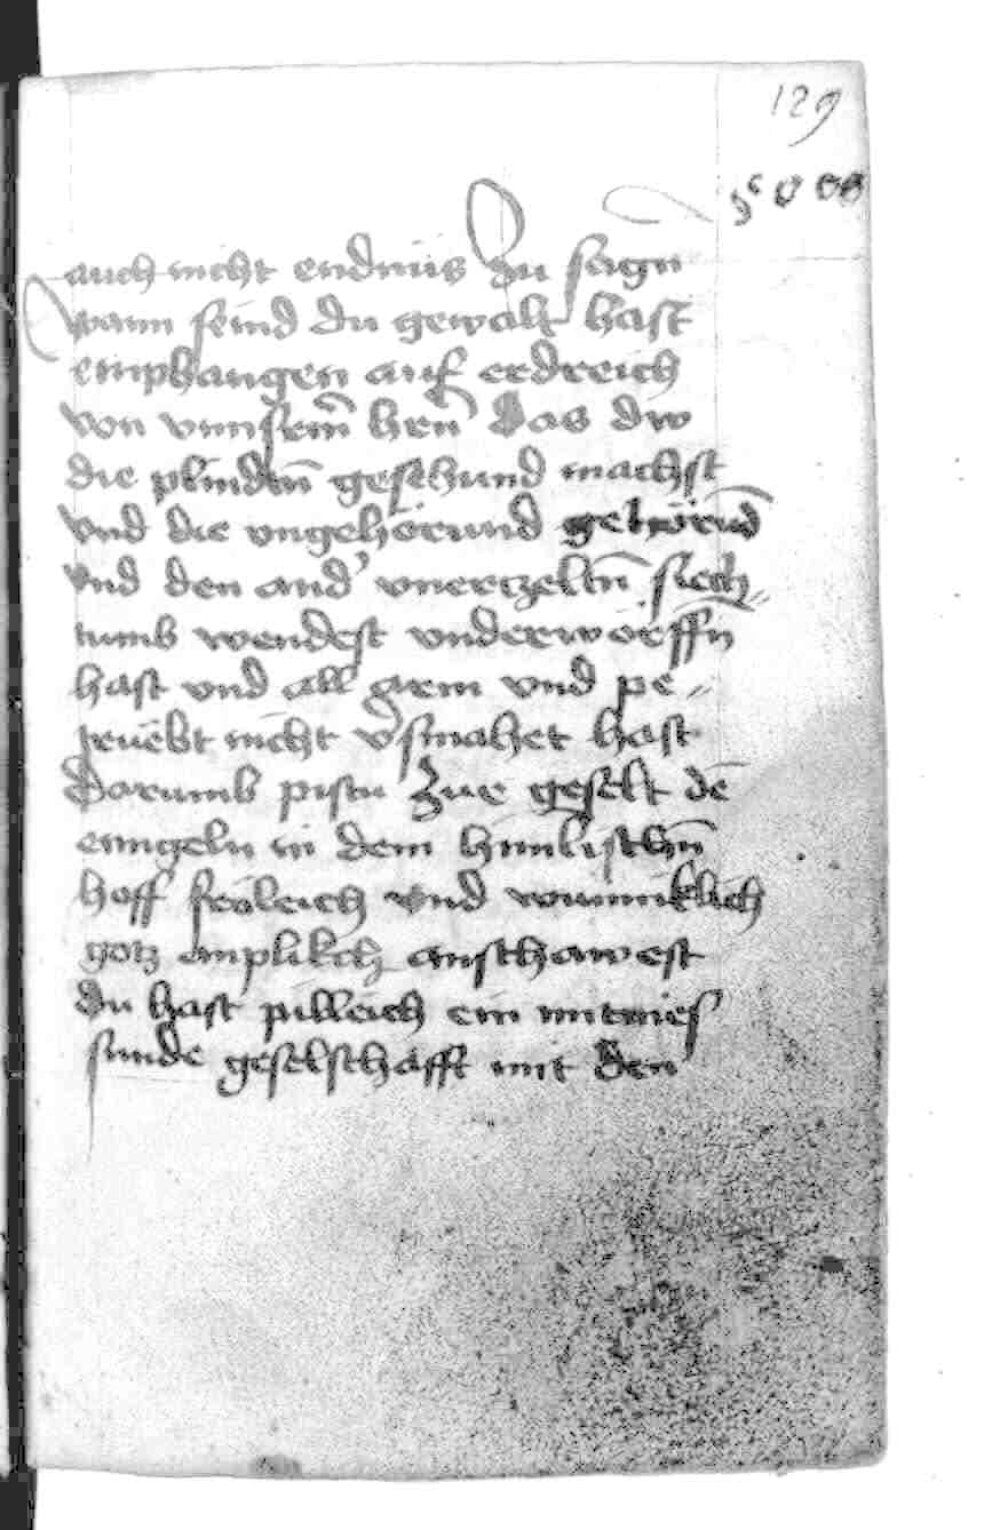 129
auch nicht endnüs zu sagn
wann seind du gewalt hast
emphangen auf erdreich
von vnnserm̄ hrn̄ das dw
die plindtn̄ geschund machst
vnd die vngehörund gehörnd̄
vnd den and' vnerczeltn̄ siech„
tumb wendest vnderworffn
hast vnd all arm vnd pe„
trüebt nicht v̄smahet hast
Darumb pistu zue geselt dē
enngeln in dem himlischn̄
hoff fröleich vnd wunniklich
gotz anplikch anschawest
du hast pilleich ein mitnies
sunde geselschafft mit den